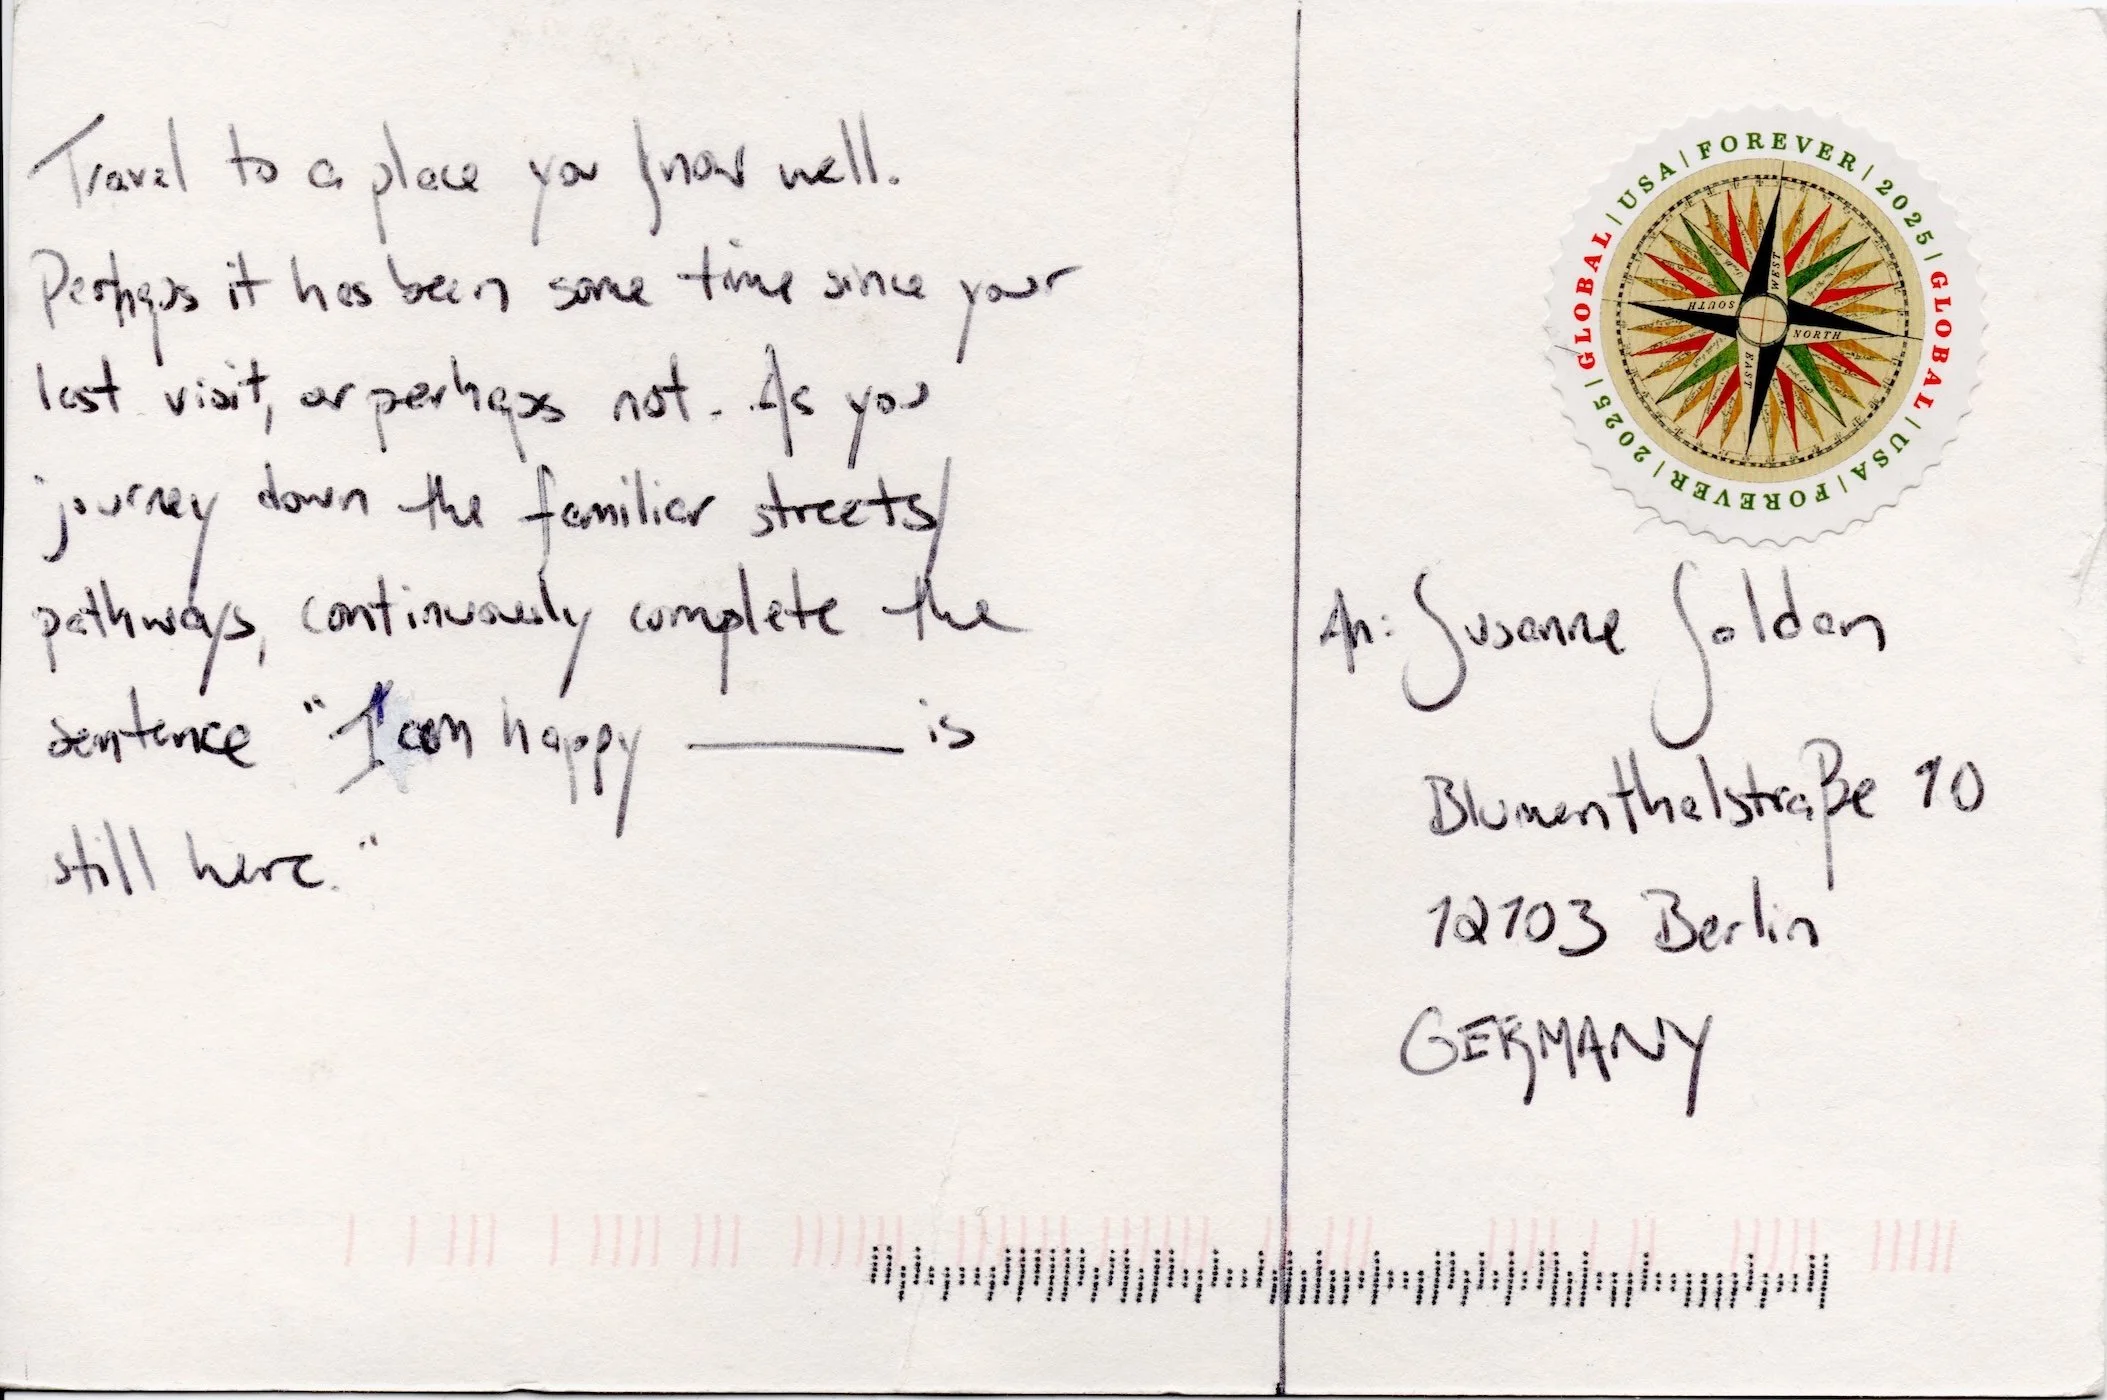 Travel to a place you know well.
Perhaps it has been some time since your
last visit, or perhaps not. As you
journey down the familiar streets/
pathways, continuously complete the
sentence "I am happy ______ is
still here."
GLOBAL | USA | FOREVER | 2025 | GLOBAL | USA | FOREVER | 2025 |
WEST
SOUTH
NORTH
EAST
An: Susanne Soldan
Blumenthalstraße 10
12103 Berlin
GERMANY